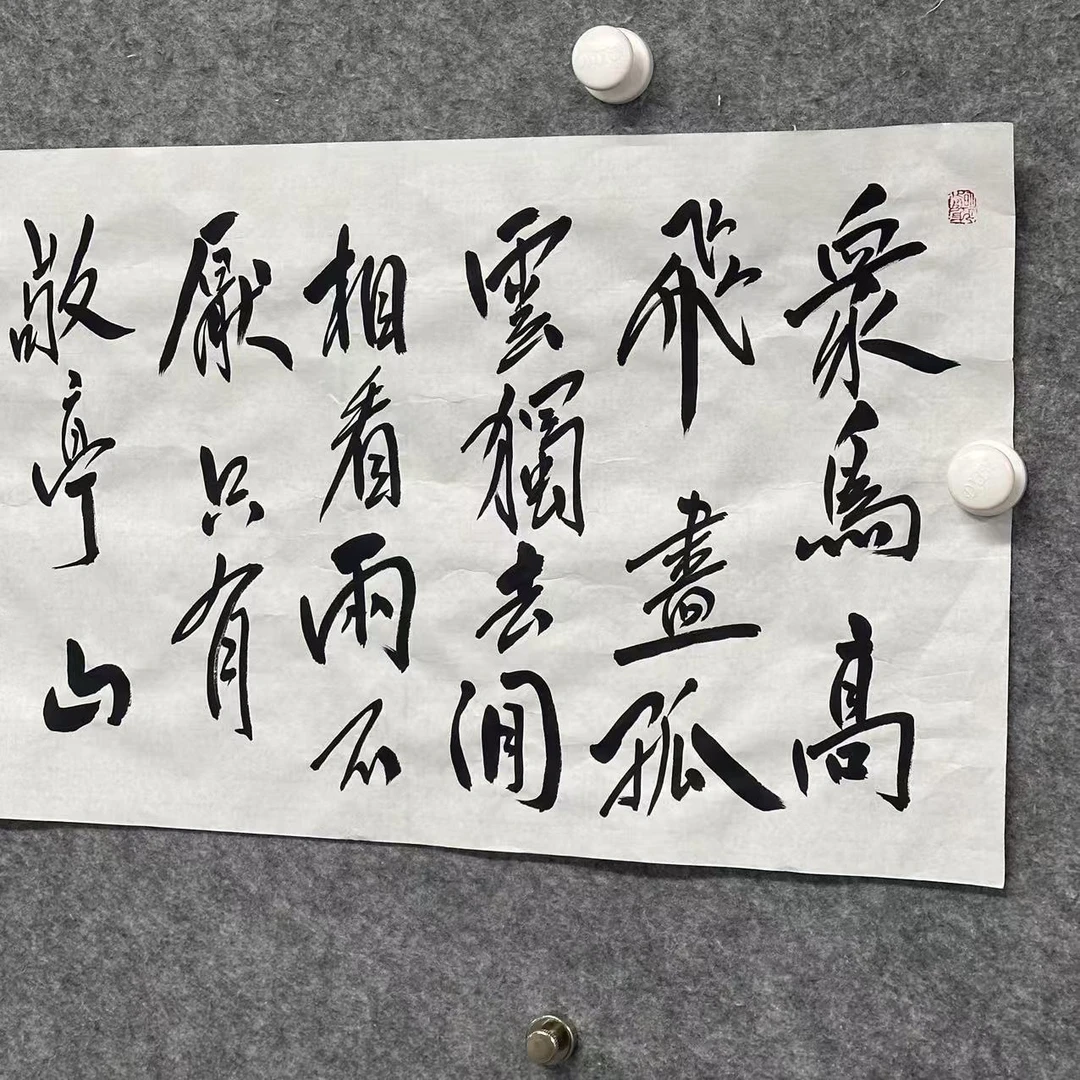 衆鳥高
飛畫孤
雲獨去閒
相看兩不
厭只有
敬亭山